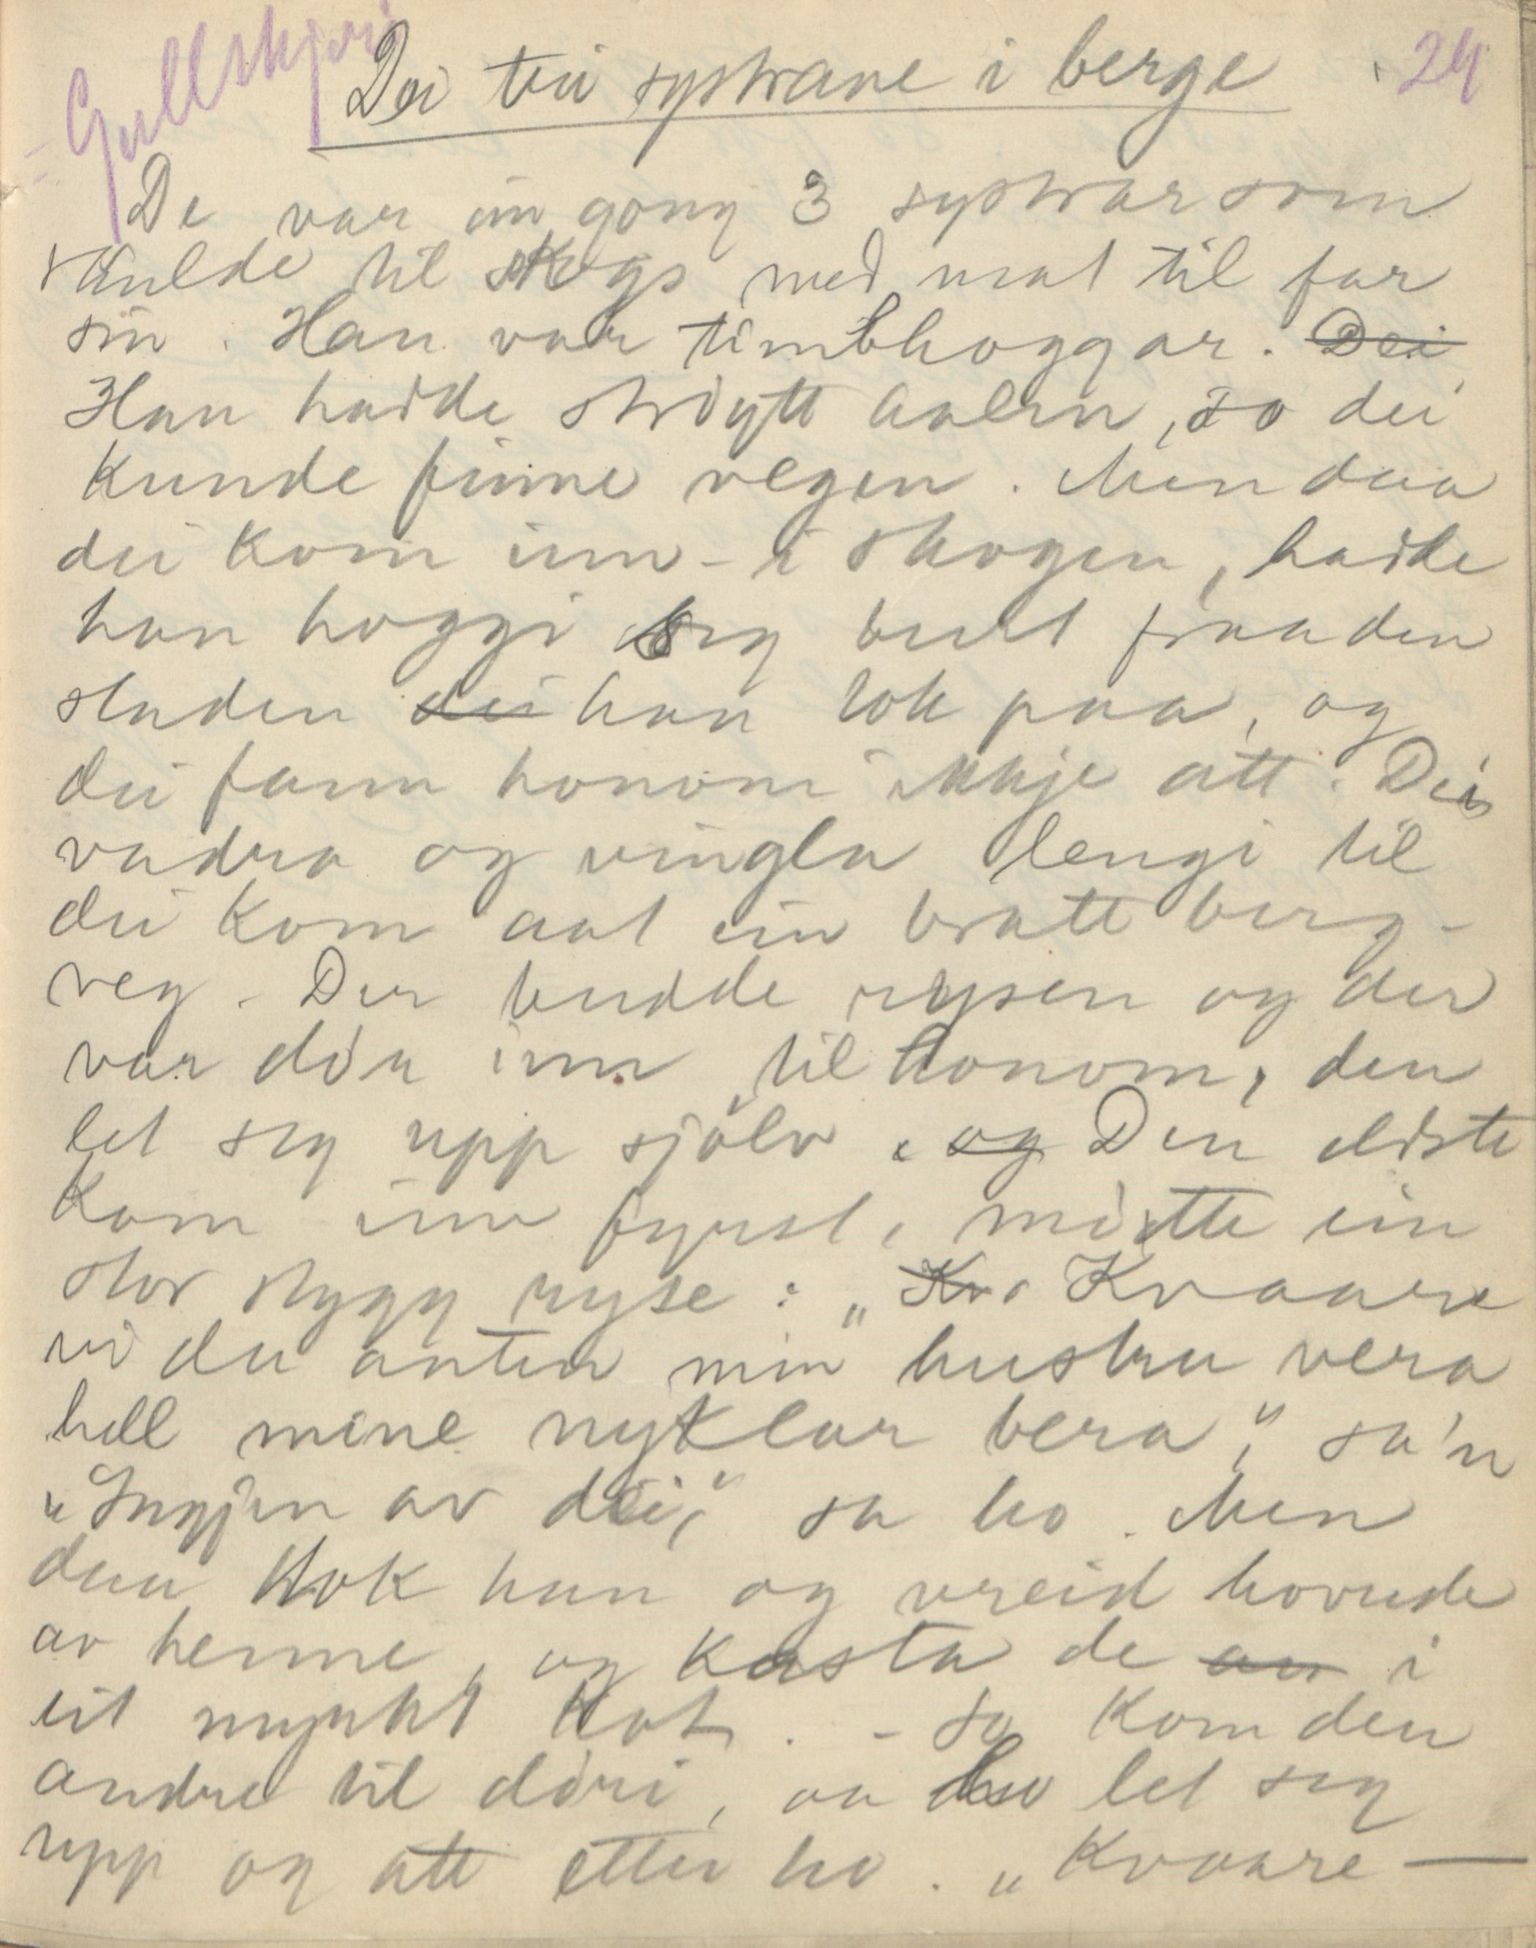 Gullskjeri
Dei tri systrane i berge
24
De var ein gong 3 systrar som
skulde til skogs med mat til far
sin. Han var timbrhoggar. Dei
Han hadde ströytt halm, so dei
kunde finne vegen. Men daa
dei kom inn i skogen, hadde
han hoggi seg burt fraa den
staden dei han tok paa, og
dei fann honom ikkje att. Dei
vadra og vingla lengi til
dei kom aat ein bratt berg-
veg. Der budde rysen og der
var döra inn til honom, den
let seg upp sjölv. og Den eldste
kom inn fyrst, mötte ein
stor stygg ryse: „Kv. Kvaare
vi du anten min hustru vera
hell mine nyklar bera," sa'n
„Ingjen av dei," sa ho. Men
daa tok han og vreid hovude
av henne, og kasta de av i
eit myrkt kot. - So kom den
andre til döri, aa ho let seg
upp og att etter ho. „Kvaare —